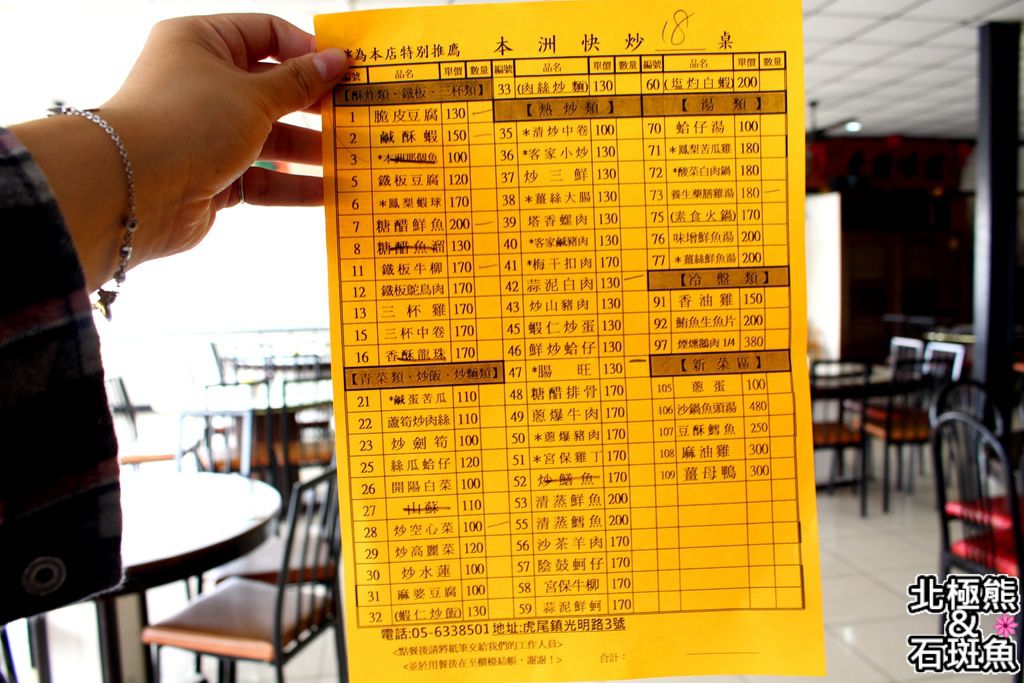 *為本店特別推薦 本洲快炒 18 桌
編號 品名 單價 數量 編號 品名 單價 數量 編號 品名 單價 數量
【酥炸類、鐵板、三杯類】
1 脆皮豆腐 130
2 鹹酥蝦 150
3 *本洲那個魚 100
5 鐵板豆腐 120
6 *鳳梨蝦球 170
7 糖醋鮮魚 200
8 糖醋魚溜 130
11 鐵板牛柳 170
12 鐵板鴕鳥肉 170
13 三杯雞 170
15 三杯中卷 170
16 香酥龍珠 170
【青菜類、炒飯、炒麵類】
21 *鹹蛋苦瓜 110
22 蘆筍炒肉絲 110
23 炒劍筍 100
25 絲瓜蛤仔 120
26 開陽白菜 100
27 山蘇 110
28 炒空心菜 100
29 炒高麗菜 120
30 炒水蓮 100
31 麻婆豆腐 100
32 (蝦仁炒飯) 130
33 (肉絲炒麵) 130
【熱炒類】
35 *清炒中卷 100
36 *客家小炒 130
37 炒三鮮 130
38 *薑絲大腸 130
39 塔香螺肉 130
40 *客家鹹豬肉 130
41 *梅干扣肉 130
42 蒜泥白肉 130
43 炒山豬肉 130
45 蝦仁炒蛋 130
46 鮮炒蛤仔 130
47 *腸旺 130
48 糖醋排骨 170
49 蔥爆牛肉 170
50 *蔥爆豬肉 170
51 *宮保雞丁 170
52 炒鱔魚 170
53 清蒸鮮魚 200
55 清蒸鱈魚 200
56 沙茶羊肉 170
57 陰鼓蚵仔 170
58 宮保牛柳 170
59 蒜泥鮮蚵 170
60 (塩灼白蝦) 200
【湯類】
70 蛤仔湯 100
71 *鳳梨苦瓜雞 180
72 *酸菜白肉鍋 180
73 養生藥膳雞湯 180
75 (素食火鍋) 170
76 味增鮮魚湯 200
77 *薑絲鮮魚湯 200
【冷盤類】
91 香油雞 150
92 鮪魚生魚片 200
97 煙燻鵝肉 1/4 380
【新菜區】
105 蔥蛋 100
106 沙鍋魚頭湯 480
107 豆酥鱈魚 250
108 麻油雞 300
109 薑母鴨 300
電話:05-6338501 地址:虎尾鎮光明路3號
<點餐後請將紙筆交給我們的工作人員>
<並於用餐後在至櫃檯結帳，謝謝！> 合計：
北極熊
&
石斑魚